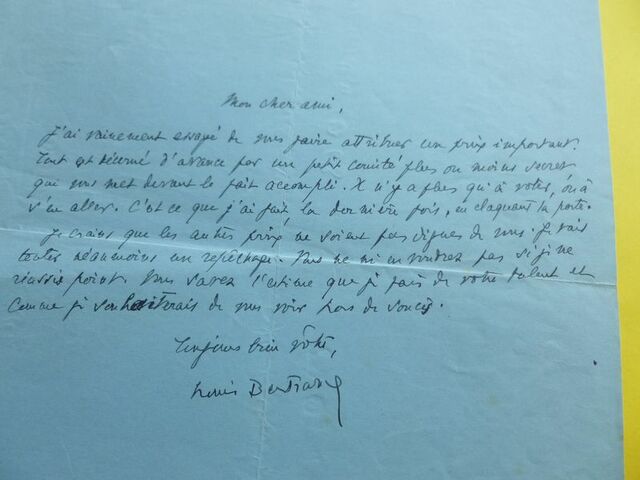 Mon cher ami,
J'ai vainement essayé de vous faire attribuer un prix important.
Tout est décerné d'avance par un petit comité plus ou moins secret
qui vous met devant le fait accompli. Il n'y a plus qu'à voter, ou à
s'en aller. C'est ce que j'ai fait, la dernière fois, en claquant la porte.
Je crains que les autres prix ne soient pas dignes de vous. Je vais
tenter néanmoins un repêchage. Vous ne m'en voudrez pas si je ne
réussis point. Vous savez l'estime que je fais de votre talent et
comme je souhaiterais de vous voir hors de soucis.
Toujours bien vôtre,
Louis Bertrand